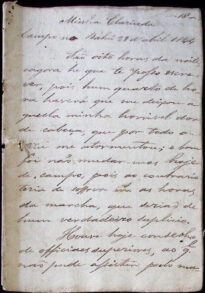 Minha Clarinda
Campo na Bahia 28 de Abril 1844
São oito horas da noite
e agora he que te posso escre
ver, pois hum quarto de ho
ra haverá que me deixou a
quella minha horrivel dor
de cabeça, que por todo a
qui me atormentou; e bom
foi não mudar mos hoje
de campo, pois ao contrario
teria de soffrer as horas
da marcha, que serião de
hum verdadeiro suplicio.
Houve hoje conselho
de officiaes superiores, ao q.
não pude assistir pelo mo